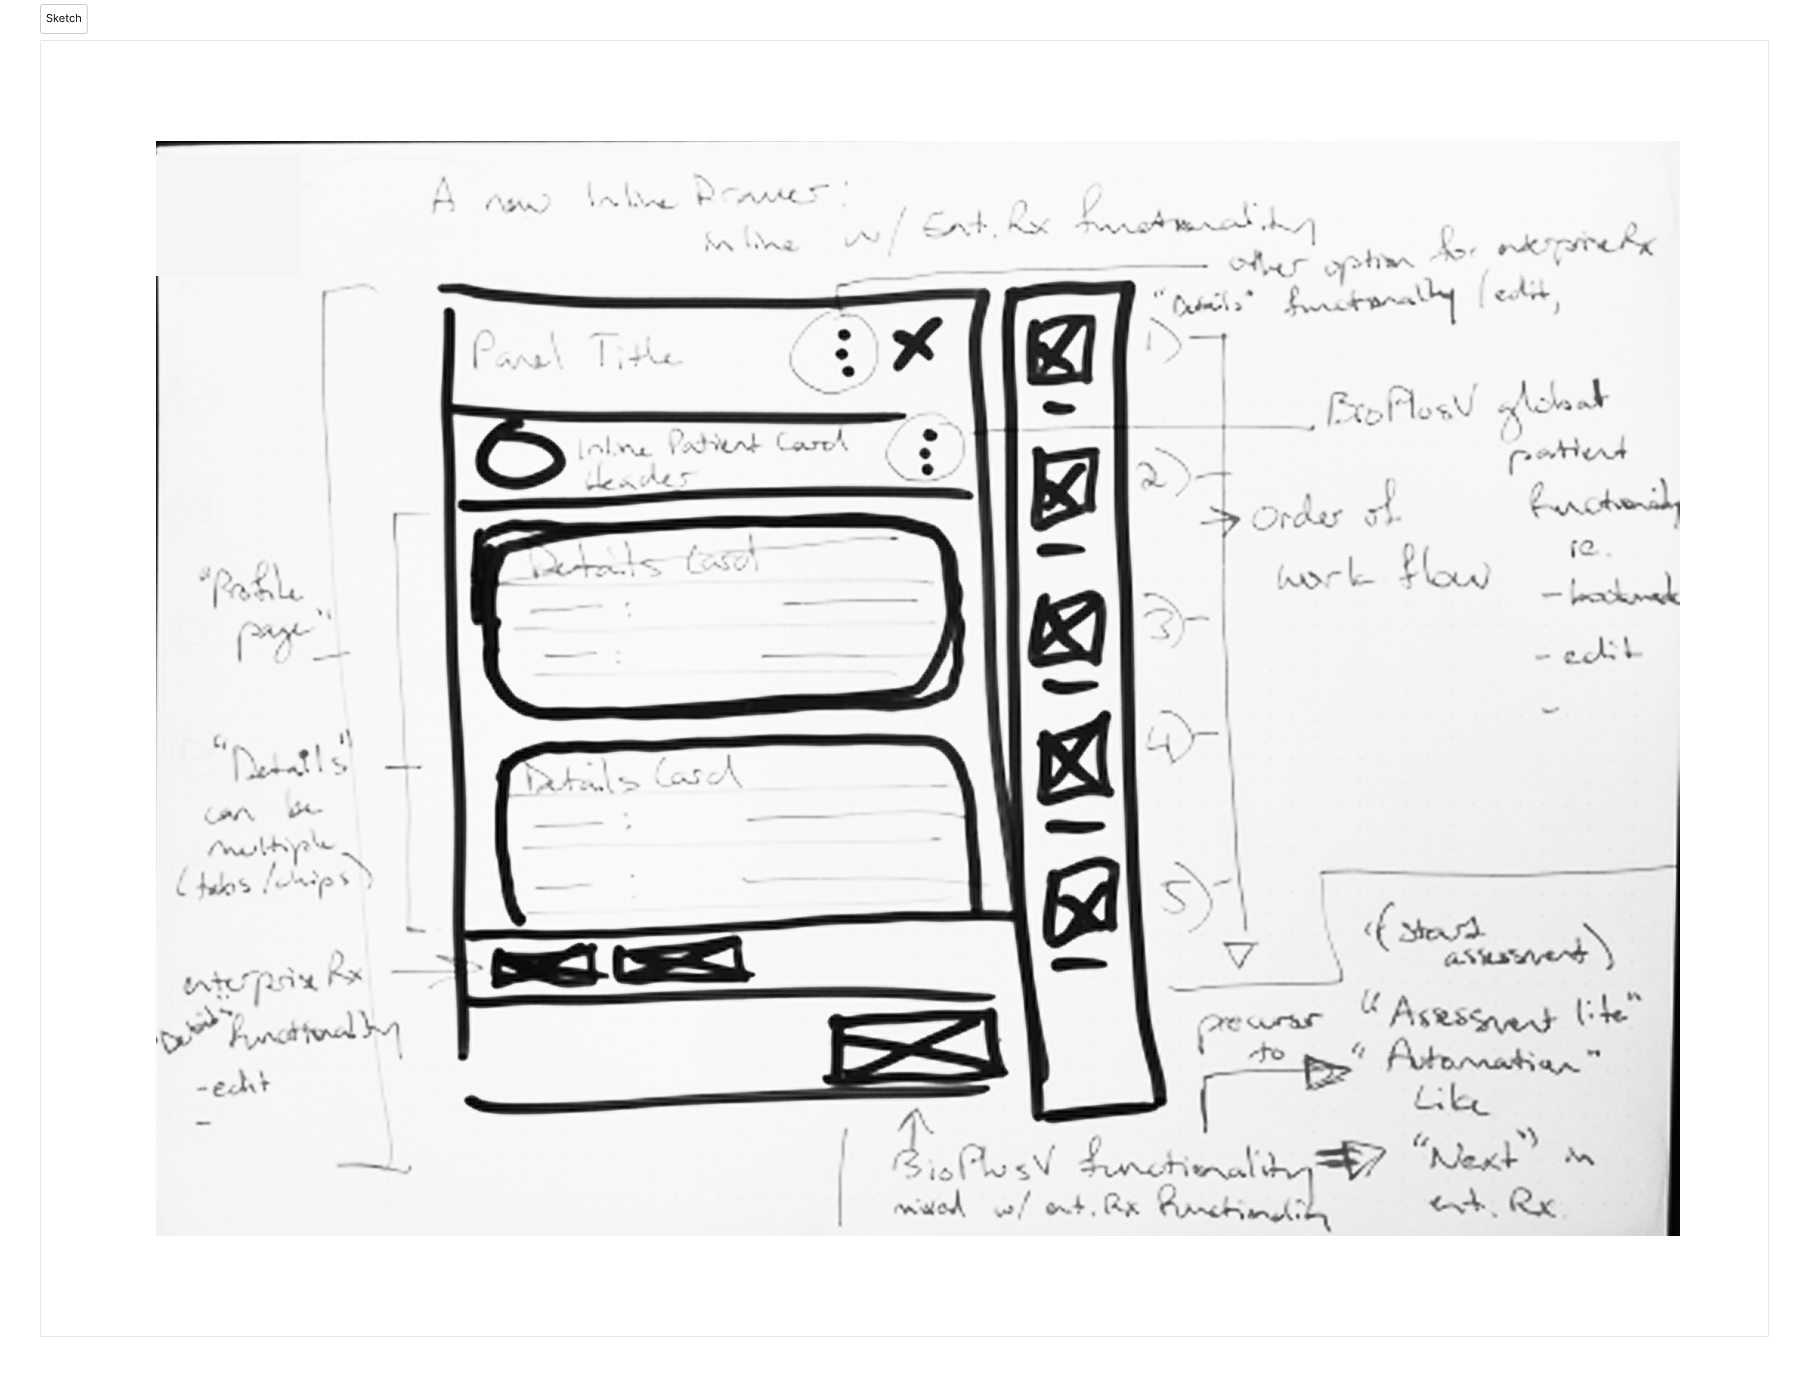 Sketch
A new Inline Drawer:
inline w/ Ent. Rx functionality
other option for enterpriseRx
"Details" functionality (edit,
Panel Title
Inline Patient Card
Header
Details Card
Details Card
1)
2)
3)
4)
5)
Order of
work flow
BioPlusV global
patient
functionality
re.
- bookmark
- edit
-
"Profile
page"
"Details"
can be
multiple
(tabs/chips)
enterprise Rx
"Details" functionality
-edit
-
"(start
assessment)
precursor
to
"Assessment lite"
"Automation"
Like
BioPlusV functionality
mixed w/ ent. Rx functionality
"Next" in
ent. Rx.